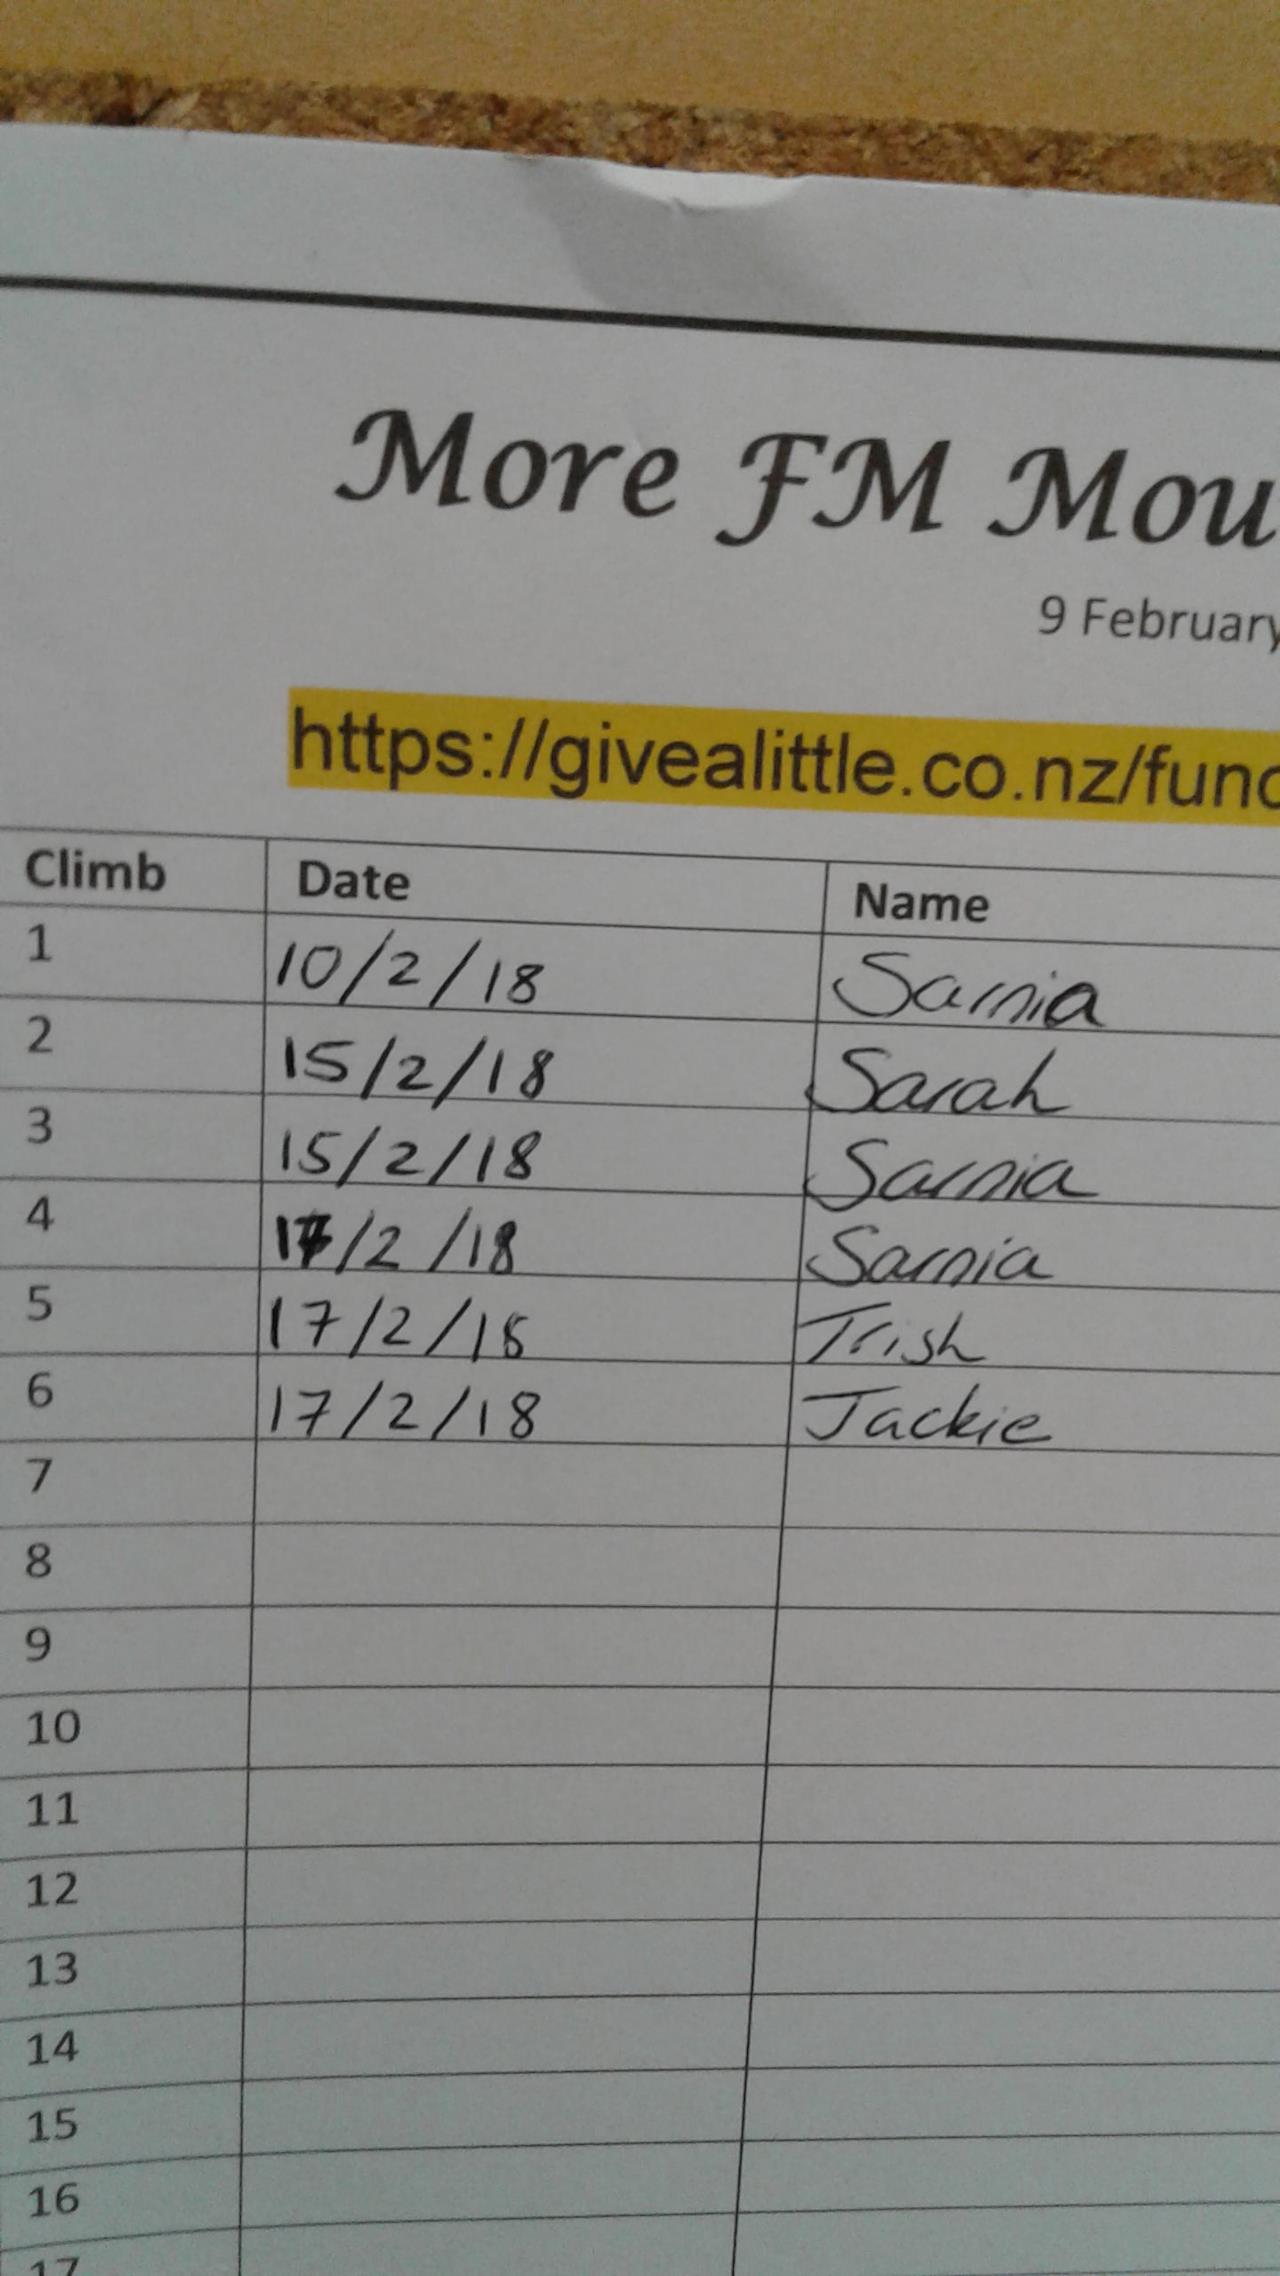 More FM Mou
9 February
https://givealittle.co.nz/fund
Climb Date Name
1 10/2/18 Sarnia
2 15/2/18 Sarah
3 15/2/18 Sarnia
4 17/2/18 Sarnia
5 17/2/18 Trish
6 17/2/18 Jackie
7
8
9
10
11
12
13
14
15
16
17